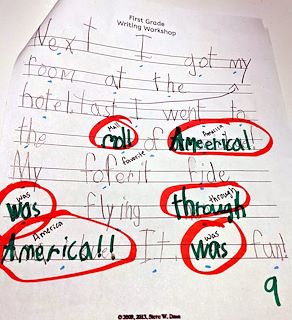 First Grade
Writing Workshop
Next I got my
room at the
hotel. Last I went to
Mall America
the mall of Ameerica!
favorite
My foferit ride
was through
was flying through
America was
America!! It was fun!
9
© 2008, 2013, Steve W. Dunn